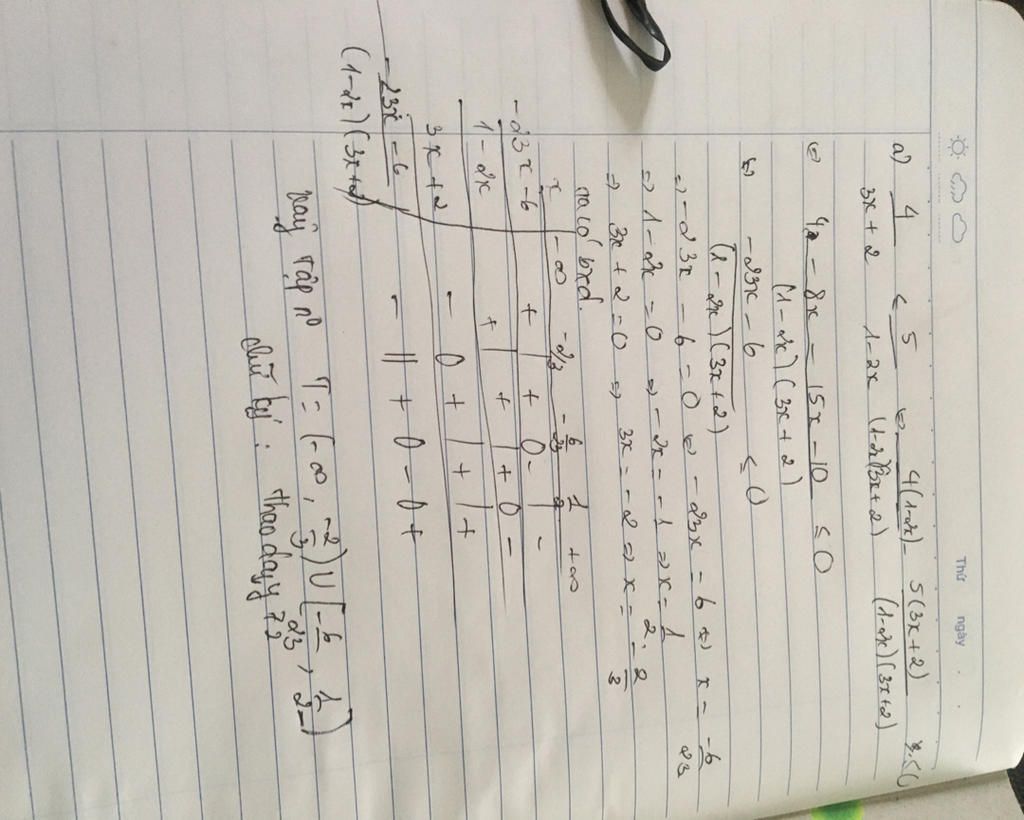 Thứ ngày
a) 4/(3x+2) ≤ 5/(1-2x) ⇔ 4(1-2x)/((1-2x)(3x+2)) - 5(3x+2)/((1-2x)(3x+2)) ≤ 0
⇔ (4 - 8x - 15x - 10)/((1-2x)(3x+2)) ≤ 0
⇔ (-23x - 6)/((1-2x)(3x+2)) ≤ 0
⇒ -23x - 6 = 0 ⇔ -23x = 6 ⇔ x = -6/23
⇒ 1 - 2x = 0 ⇒ -2x = -1 ⇒ x = 1/2
⇒ 3x + 2 = 0 ⇒ 3x = -2 ⇒ x = -2/3
Ta có bxd.
x -∞ -2/3 -6/23 1/2 +∞
-23x-6 + | + 0 - | -
1-2x + | + | + 0 -
3x+2 - 0 + | + | +
(-23x-6)/((1-2x)(3x+2)) - || + 0 - 0 +
Vậy tập nº T = (-∞, -2/3) ∪ [-6/23, 1/2)